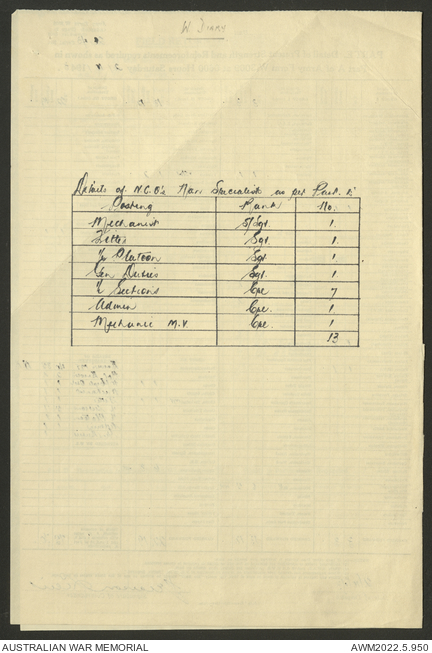 W. DIARY
Details of N.C.O's Non Specialists as per Part
Posting Rank No.
Mechanist S/Sgt. 1.
Fitter Sgt. 1.
Platoon Sgt. 1.
Gen Duties Sgt. 1.
Sections Cpl. 7
Admin Cpl. 1
Mechanic M.V. Cpl. 1
13
AUSTRALIAN WAR MEMORIAL
AWM2022.5.950